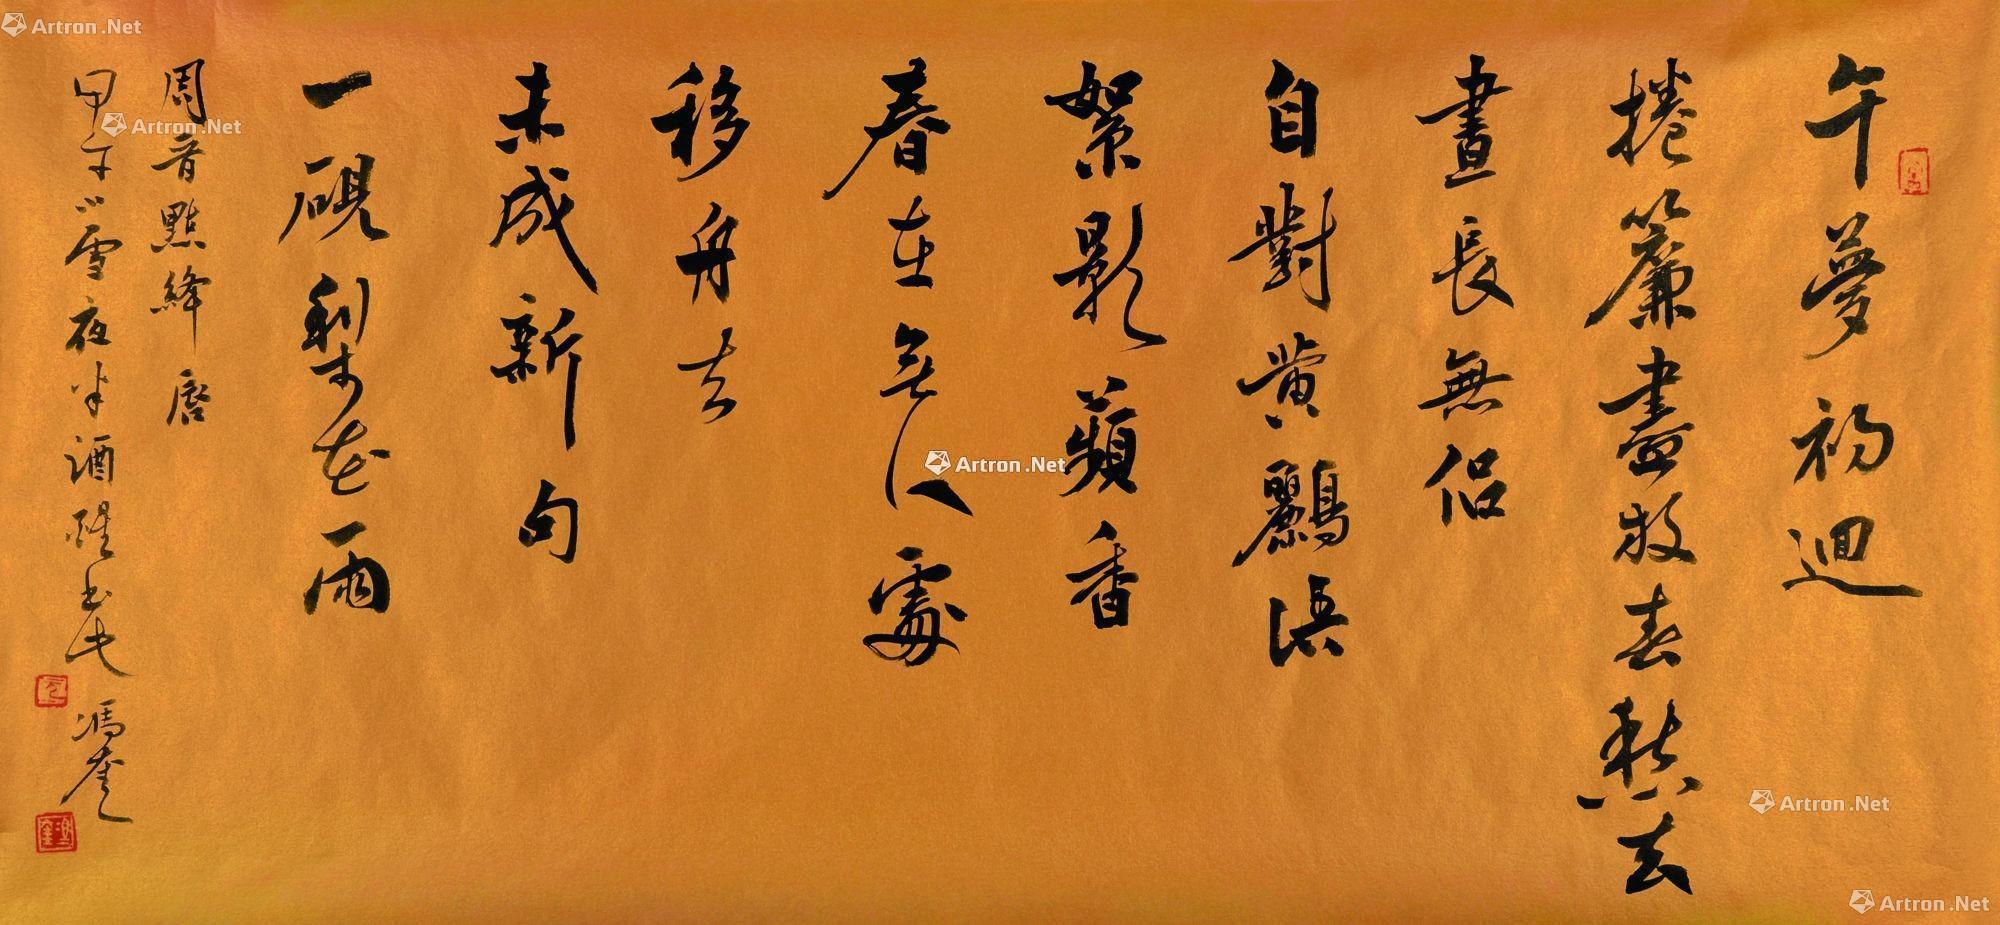 午夢初迴
捲簾盡放春愁去
晝長無侶
自對黄鸝語
絮影蘋香
春在無人處
移舟去
未成新句
一硯梨花雨
周晋點絳唇
甲午小雪夜半酒醒书此 馮奎
Artron.Net
Artron.Net
Artron.Net
Artron.Net
Artron.Net